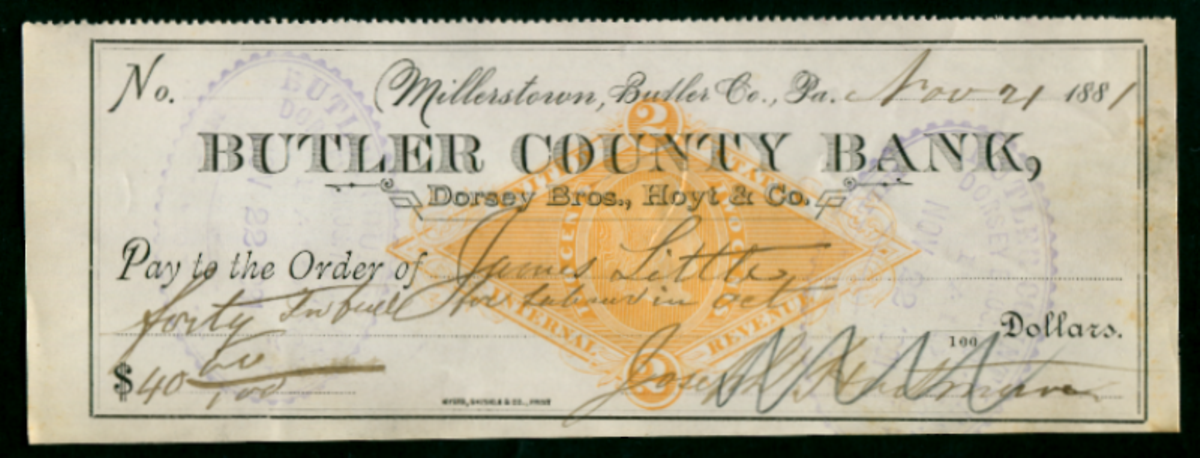 No. Millerstown, Butler Co., Pa. Nov 21 1881
BUTLER COUNTY BANK,
Dorsey Bros., Hoyt & Co.
Pay to the Order of James Little
forty In full for labour in oct
100 Dollars.
$40 00/100 Joseph Hartman
2
UNITED STATES
INTERNAL REVENUE
2
BUTLER
DORSEY
NOV 22